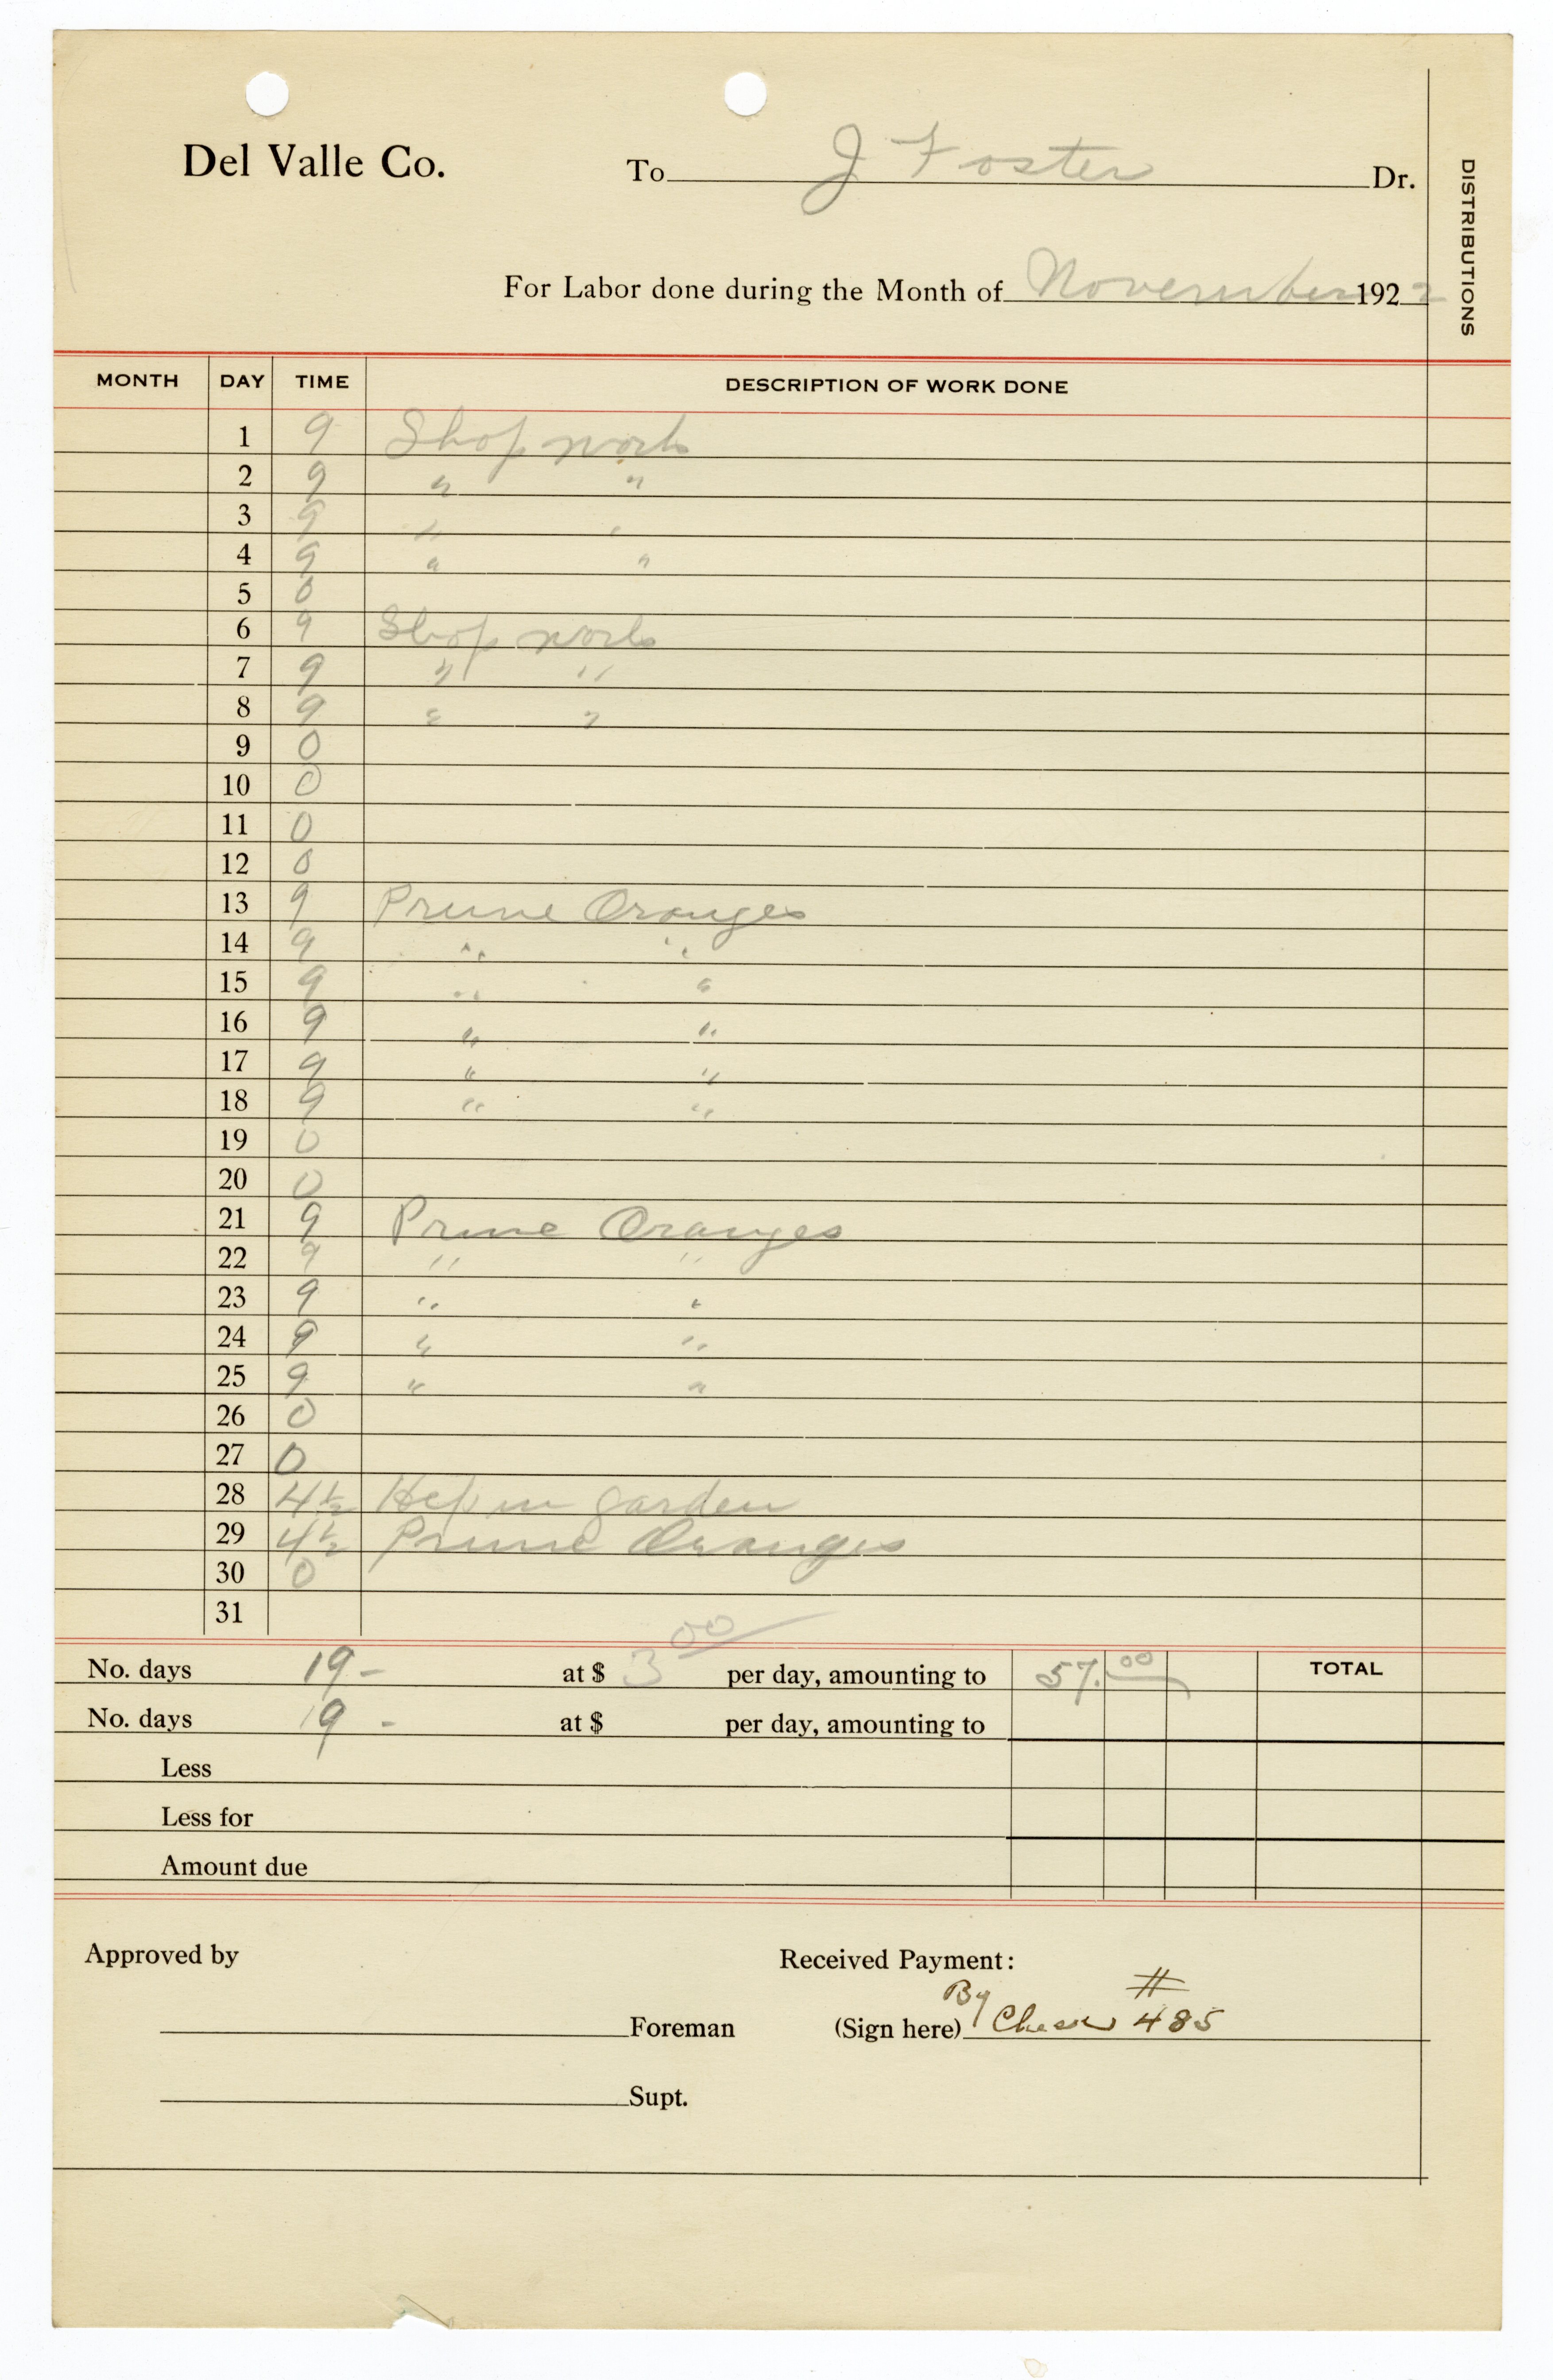 Del Valle Co. To J Foster Dr.
DISTRIBUTIONS
For Labor done during the Month of November 1922
MONTH DAY TIME DESCRIPTION OF WORK DONE
1 9 Shop work
2 9 " "
3 9 " "
4 9 " "
5 0
6 9 Shop work
7 9 " "
8 9 " "
9 0
10 0
11 0
12 0
13 9 Prune Oranges
14 9 " "
15 9 " "
16 9 " "
17 9 " "
18 9 " "
19 0
20 0
21 9 Prune Oranges
22 9 " "
23 9 " "
24 9 " "
25 9 " "
26 0
27 0
28 4½ Hep in garden
29 4½ Prune Oranges
30 0
31
No. days 19- at $ 3 00 per day, amounting to 57.00 TOTAL
No. days 19 - at $ per day, amounting to
Less
Less for
Amount due
Approved by Received Payment:
Foreman (Sign here) By Check # 485
Supt.